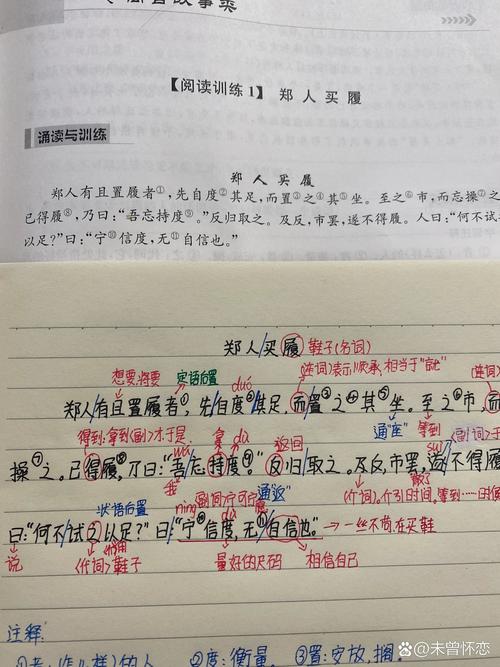 故事类
【阅读训练1】 郑人买履
诵读与训练
郑人买履
郑人有且置履者①,先自度②其足,而置③之④其⑤坐。至之⑥市,而忘操⑦之
已得履⑧,乃曰:“吾忘持度⑨。”反归取之。及反,市罢,遂不得履。人曰:“何不试
以足?”曰:“宁⑩信度,无⑪自信也。”
郑人/买履 鞋子(名词)
(连词)表示顺承,相当于"就"
想要,将要 定语后置 duó (连词)
郑人/有且置履者①,先/自度②其足,而/置③之④其⑤坐。至之⑥市,而
得到,拿到(副)才,于是 拿 dù 返回 通"座" 等到 suì (副词)于
操⑦之。已得履⑧,乃曰:“吾忘持度⑨。”反归/取之。及反,市罢,遂不得履
我 (介词)介引时间。等到……时候 散了
状语后置 nìng 副词宁可,宁愿 通"返"
曰:“何不/试之以足?”曰:“宁⑩信度,无⑪自信也。”→一丝不苟在买鞋
说 (代词)鞋子 量好的尺码 相信自己
注释:
②度:衡量。 ③置:安放,搁
@未曾怀恋